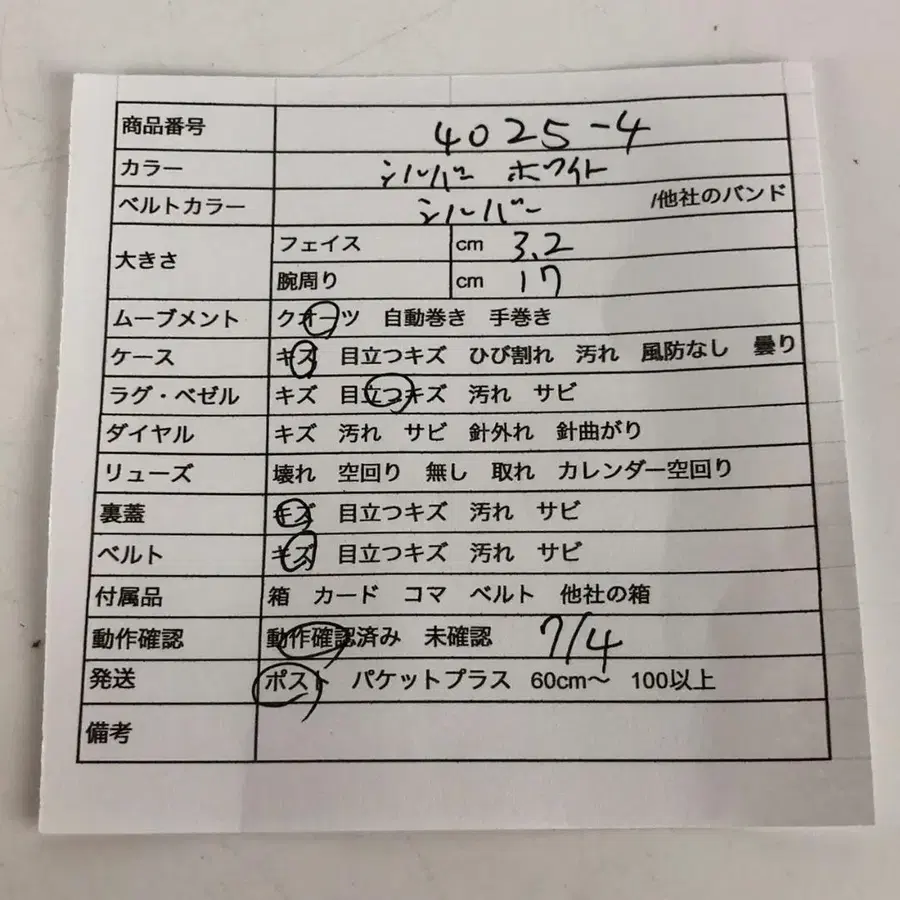 商品番号 4025-4
カラー シルバー ホワイト
ベルトカラー シルバー /他社のバンド
大きさ フェイス cm 3.2
腕周り cm 17
ムーブメント クオーツ 自動巻き 手巻き
ケース キズ 目立つキズ ひび割れ 汚れ 風防なし 曇り
ラグ・ベゼル キズ 目立つキズ 汚れ サビ
ダイヤル キズ 汚れ サビ 針外れ 針曲がり
リューズ 壊れ 空回り 無し 取れ カレンダー空回り
裏蓋 キズ 目立つキズ 汚れ サビ
ベルト キズ 目立つキズ 汚れ サビ
付属品 箱 カード コマ ベルト 他社の箱
動作確認 動作確認済み 未確認 7/4
発送 ポスト パケットプラス 60cm〜 100以上
備考